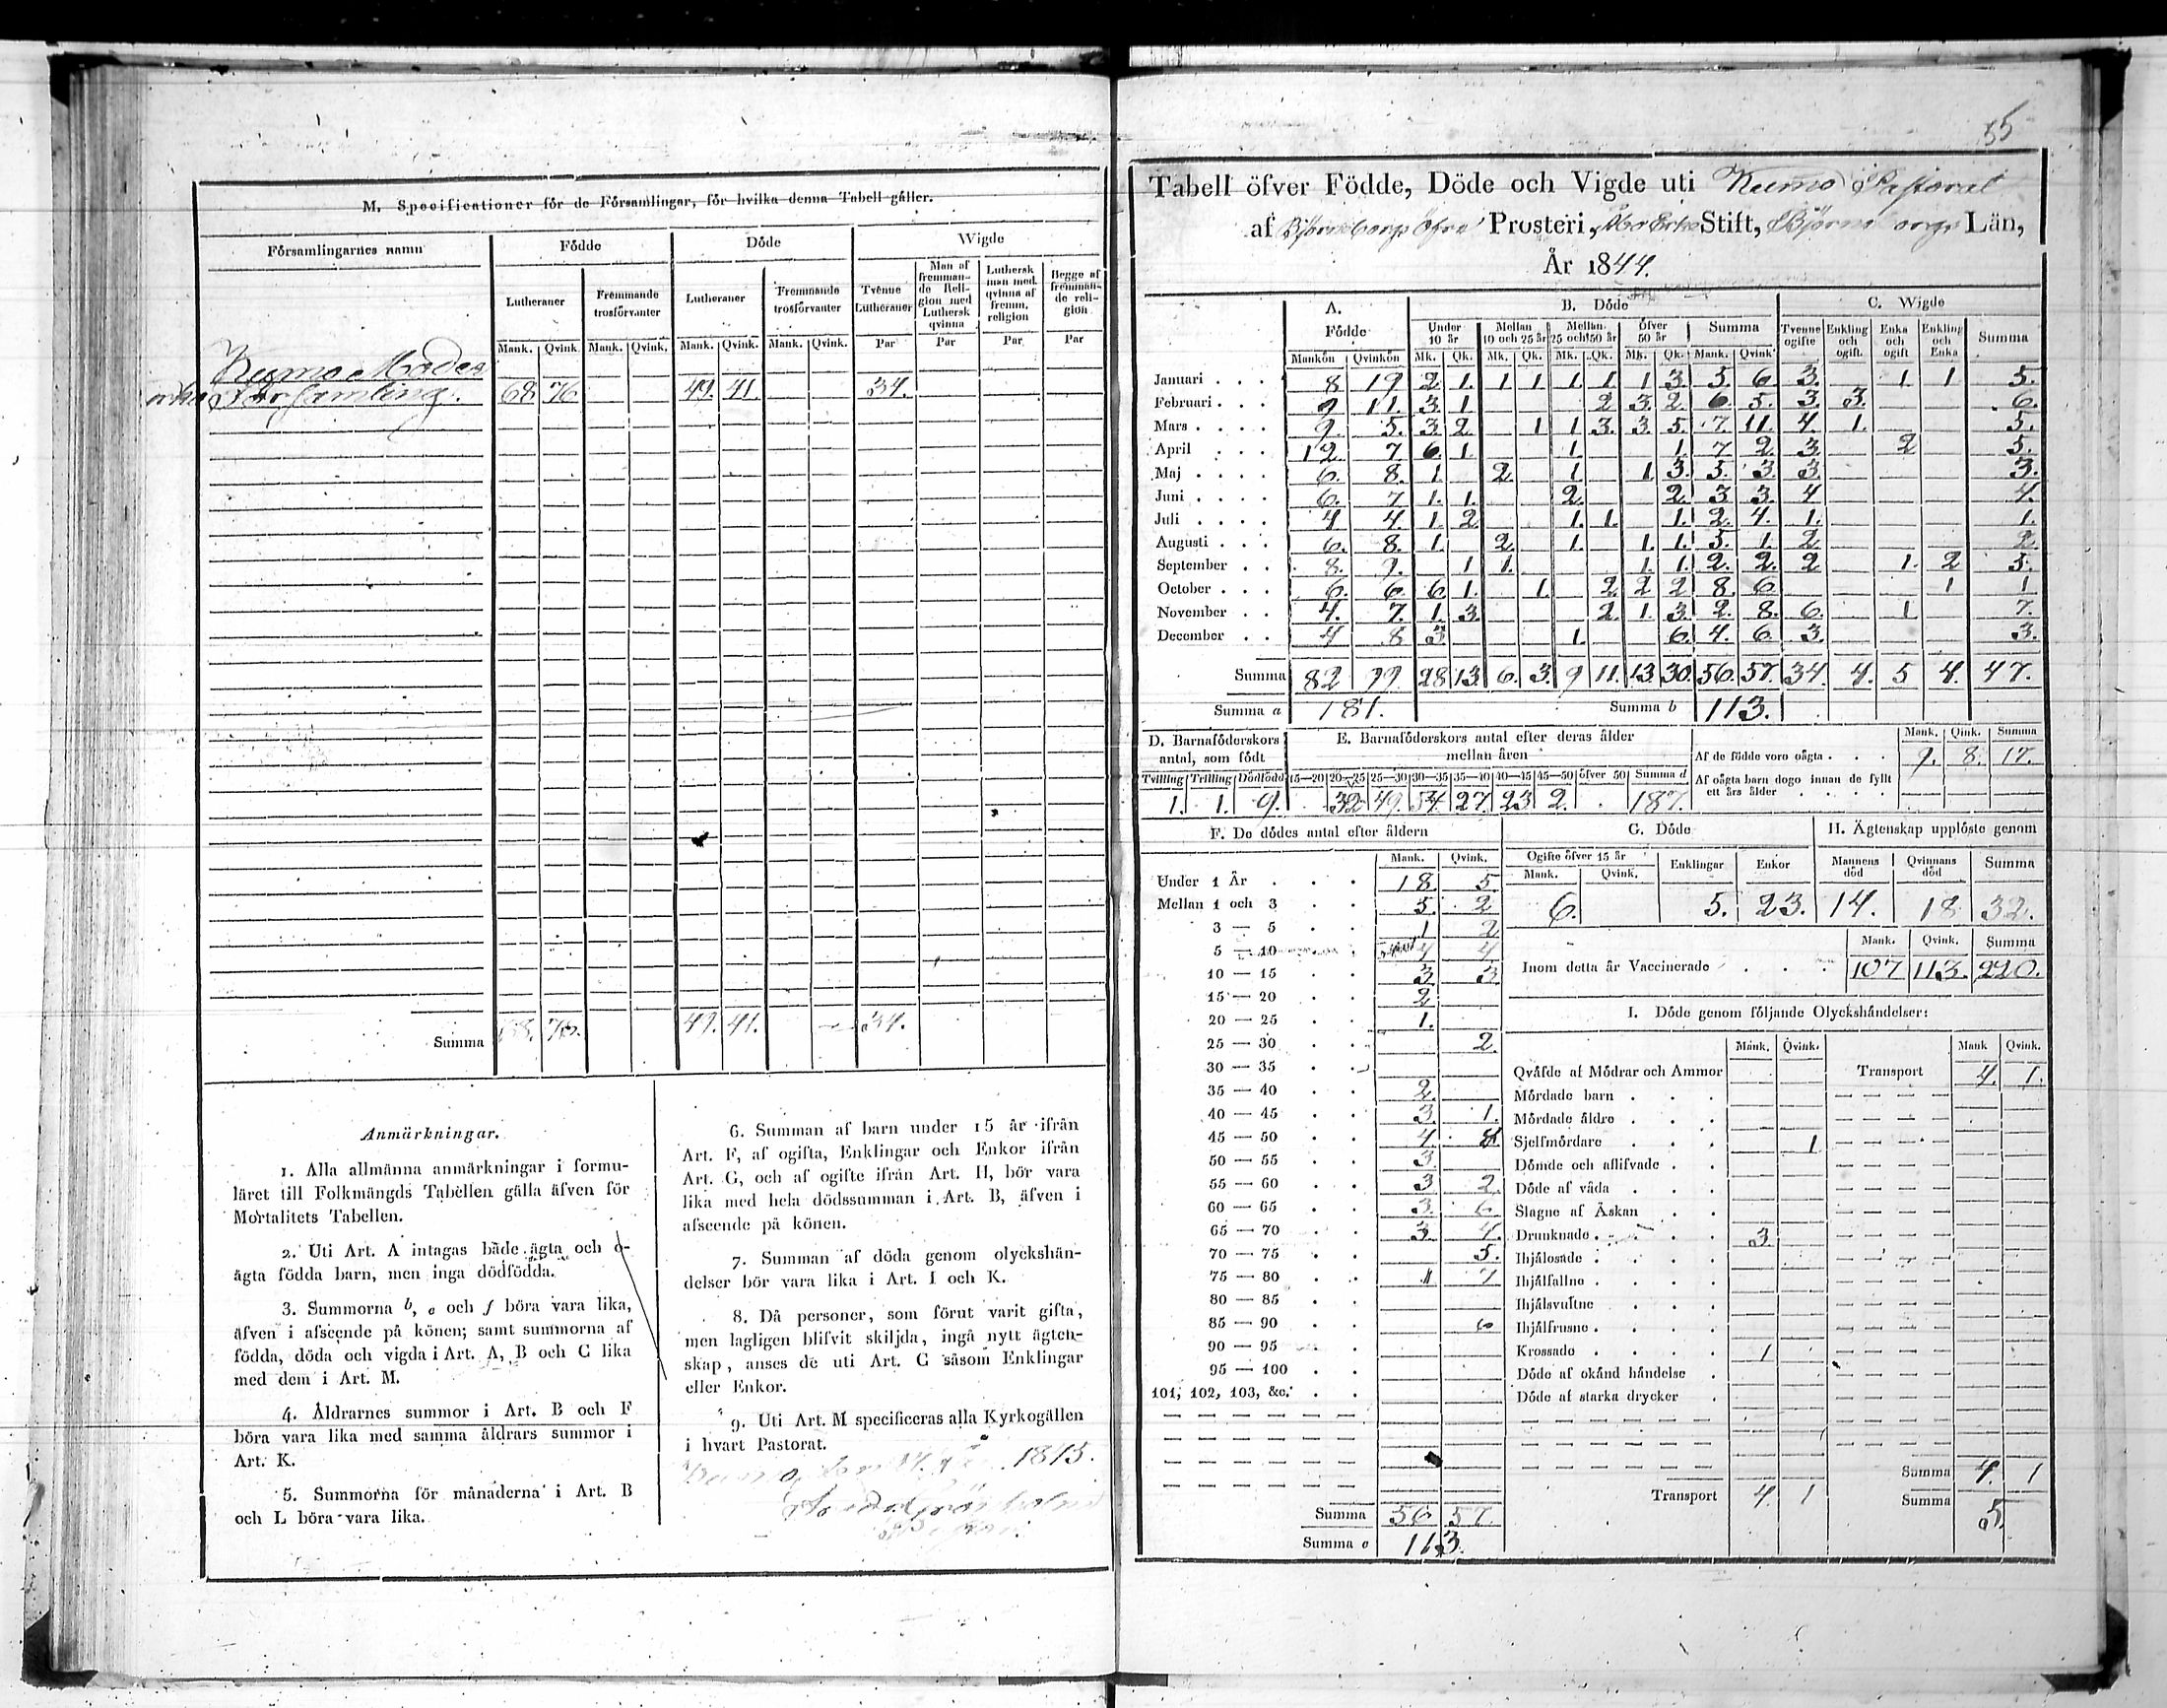 M. Specificationer för de Församlingar, för hvilka denna Tabell gäller.
Församlingarnes namn Födde Döde Wigde
Lutheraner Fremmande trosförvanter Lutheraner Fremmande trosförvanter Tvenne Lutheraner Man af fremmande Religion med Luthersk qvinna Luthersk man med qvinna af fremm. religion Begge af fremmande religion
Mank. Qvink. Mank. Qvink. Mank. Qvink. Mank. Qvink. Par Par Par Par
Kumo Moder
Församling. 68. 76. 49. 41. 34.
Summa 68. 76. 49. 41. 34.
Anmärkningar.
1. Alla allmänna anmärkningar i formu-
läret till Folkmängds Tabellen gälla äfven för
Mortalitets Tabellen.
2. Uti Art. A intagas både ägta och o-
ägta födda barn, men inga dödfödda.
3. Summorna b, e och f böra vara lika,
äfven i afseende på könen; samt summorna af
födda, döda och vigda i Art. A, B och C lika
med dem i Art. M.
4. Åldrarnes summor i Art. B och F
böra vara lika med samma åldrars summor i
Art. K.
5. Summorna för månaderna i Art. B
och L böra vara lika.
6. Summan af barn under 15 år ifrån
Art. F, af ogifta, Enklingar och Enkor ifrån
Art. G, och af ogifte ifrån Art. H, bör vara
lika med hela dödssumman i Art. B, äfven i
afseende på könen.
7. Summan af döda genom olyckshän-
delser bör vara lika i Art. I och K.
8. Då personer, som förut varit gifta,
men lagligen blifvit skiljda, ingå nytt ägten-
skap, anses de uti Art. C såsom Enklingar
eller Enkor.
9. Uti Art. M specificeras alla Kyrkogällen
i hvart Pastorat.
Kumo 1845.
55
Tabell öfver Födde, Döde och Vigde uti Kumo Pastorat
af Björneborgs Öfre Prosteri, Åbo Erke Stift, Björneborgs Län,
År 1844.
A. Födde B. Döde C. Wigde
Under 10 år Mellan 10 och 25 år Mellan 25 och 50 år Öfver 50 år Summa Tvenne ogifte Enkling och ogift. Enka och ogift Enkling och Enka Summa
Mankön Qvinkön Mk. Qk. Mk. Qk. Mk. Qk. Mk. Qk. Mank. Qvink.
Januari . . . 8 19 2. 1. 1 1 1. 1 1 3. 5. 6. 3. 1 1 5.
Februari . . . 9 11. 3. 1 2 3. 2. 6. 5. 3 3. 6.
Mars . . . . 9. 5. 3. 2. 1 1 3. 3. 5. 7 11. 4 1. 5.
April . . . 12. 7 6. 1. 1. 1. 7 2. 3. 2 5.
Maj . . . . 6. 8. 1. 2. 1. 1. 3. 5. 3. 3. 3.
Juni . . . . 6. 7 1. 1. 2. 2. 3 3. 4 4.
Juli . . . . 4 4. 1. 2 1. 1. 1. 2. 4. 1. 1.
Augusti . . . 6. 8. 1. 2. 1. 1. 1. 5. 1. 2. 2.
September . . 8. 9. 1 1. 1. 1. 2. 2. 2 1. 2 5.
October . . . 6. 6. 6 1. 1. 2 2 2 8. 6 1 1
November . . 4. 7. 1. 3. 2. 1. 3. 2. 8. 6. 1 7.
December . . 4 8 3 1. 6. 4. 6. 3. 3.
Summa 82 99. 28 13. 6. 3. 9 11. 13. 30. 56. 57. 34. 4. 5 4. 47.
Summa a 181. Summa b 113.
D. Barnaföderskors antal, som födt
E. Barnaföderskors antal efter deras ålder mellan åren
Tvilling Trilling Dödfödd 15—20 20—25 25—30 30—35 35—40 40—45 45—50 öfver 50 Summa d
1. 1. 9. 32 49. 54. 27. 23 2. 187.
Mank. Qink. Summa
Af de födde voro oägta . . . 9. 8. 17.
Af oägta barn dogo innan de fyllt
ett års ålder . . . .
F. De dödes antal efter åldern
Mank. Qvink.
Under 1 År . . . 18. 5.
Mellan 1 och 3 . . 5. 2
3 — 5 . . 1 2
5 — 10 . . 4 4
10 — 15 . . 3 3.
15 — 20 . . 2
20 — 25 . . 1.
25 — 30 . . 2.
30 — 35 . .
35 — 40 . . 2.
40 — 45 . . 3. 1.
45 — 50 . . 4. 8.
50 — 55 . . 3.
55 — 60 . . 3 2.
60 — 65 . . 3. 6.
65 — 70 . . 3. 4.
70 — 75 . . 5.
75 — 80 . . 1 7
80 — 85 . .
85 — 90 . . 6
90 — 95 . .
95 — 100 . .
101, 102, 103, &c. . .
Summa 56 57
Summa e 113.
G. Döde
Ogifte öfver 15 år Enklingar Enkor
Mank. Qvink.
6. 5. 23.
H. Ägtenskap upplöste genom
Mannens död Qvinnans död Summa
14. 18 32.
Mank. Qvink. Summa
Inom detta år Vaccinerade . . . 107 113. 220.
I. Döde genom följande Olyckshändelser:
Mank. Qvink. Mank Qvink.
Qväfde af Mödrar och Ammor Transport 4. 1.
Mördade barn . . .
Mördade äldre . . .
Sjelfmördare . . . 1
Dömde och aflifvade . .
Döde af våda . . .
Slagne af Åskan . .
Drunknade . . . . 3.
Ihjälosade . . . .
Ihjälfallne . . . .
Ihjälsvultne . . .
Ihjälfrusne . . . .
Krossade . . . . 1
Döde af okänd händelse .
Döde af starka drycker .
Summa 4. 1
Transport 4. 1 Summa 5